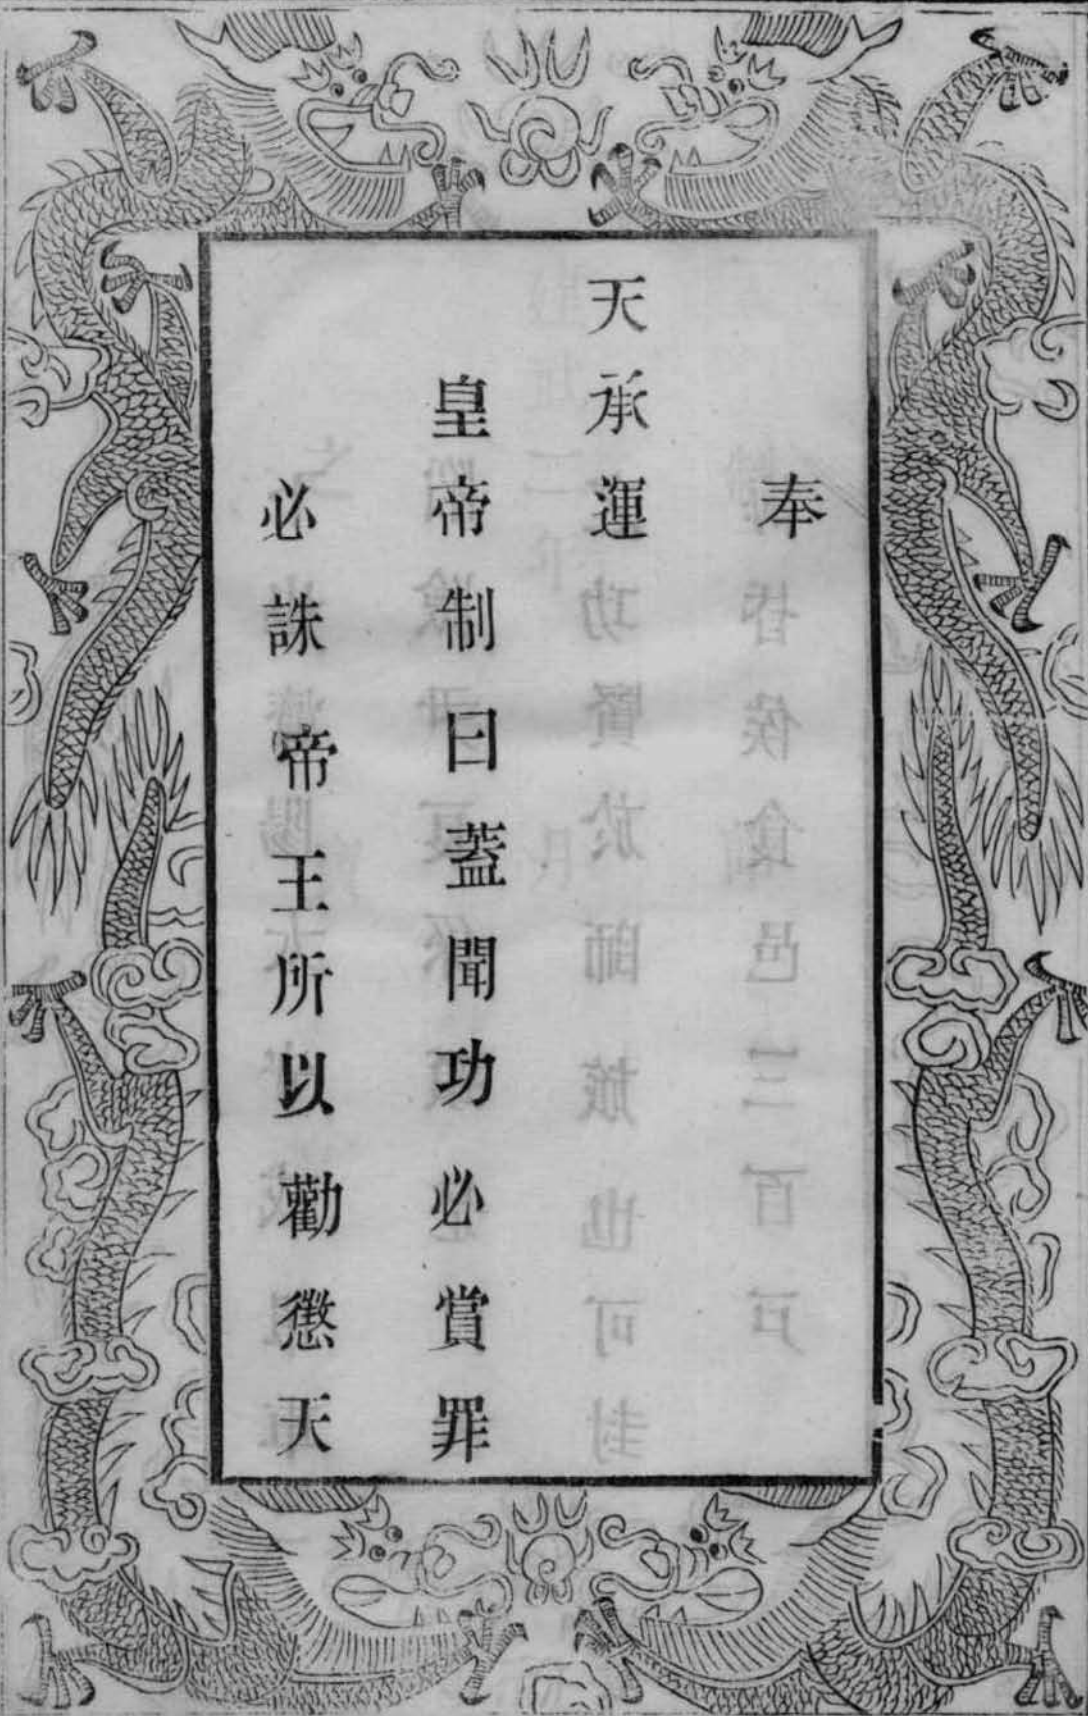 奉
天承運
皇帝制曰蓋聞功必賞罪
必誅帝王所以勸懲天